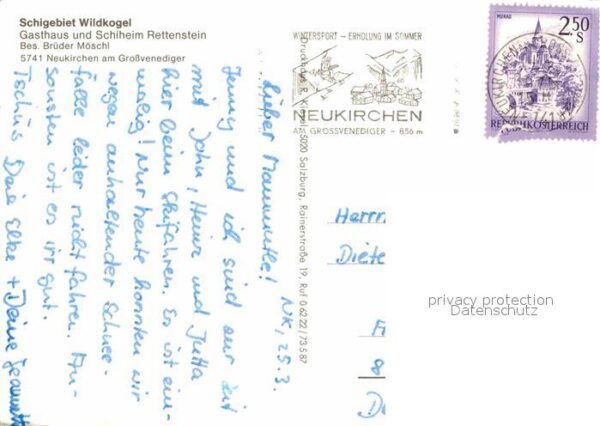 Schigebiet Wildkogel
Gasthaus und Schiheim Rettenstein
Bes. Brüder Möschl
5741 Neukirchen am Großvenediger
WINTERSPORT - ERHOLUNG IM SOMMER
NEUKIRCHEN
AM GROSSVENEDIGER - 856 m
MURAU
2.50 S
REPUBLIK ÖSTERREICH
5020 Salzburg, Rainerstraße 19, Ruf 0 62 22 / 73 5 87
NK, 25.3.
Lieber
Jenny und ich sind zur Zeit
mit John, Heinz und Jutta
hier beim Skifahren. Es ist ein-
malig! Nur heute konnten wir
wegen anhaltender Schnee-
fälle leider nicht fahren. An-
sonsten ist es irr gut.
Tschüs Deine Elke + Deine
Herrn
Diete
privacy protection
Datenschutz